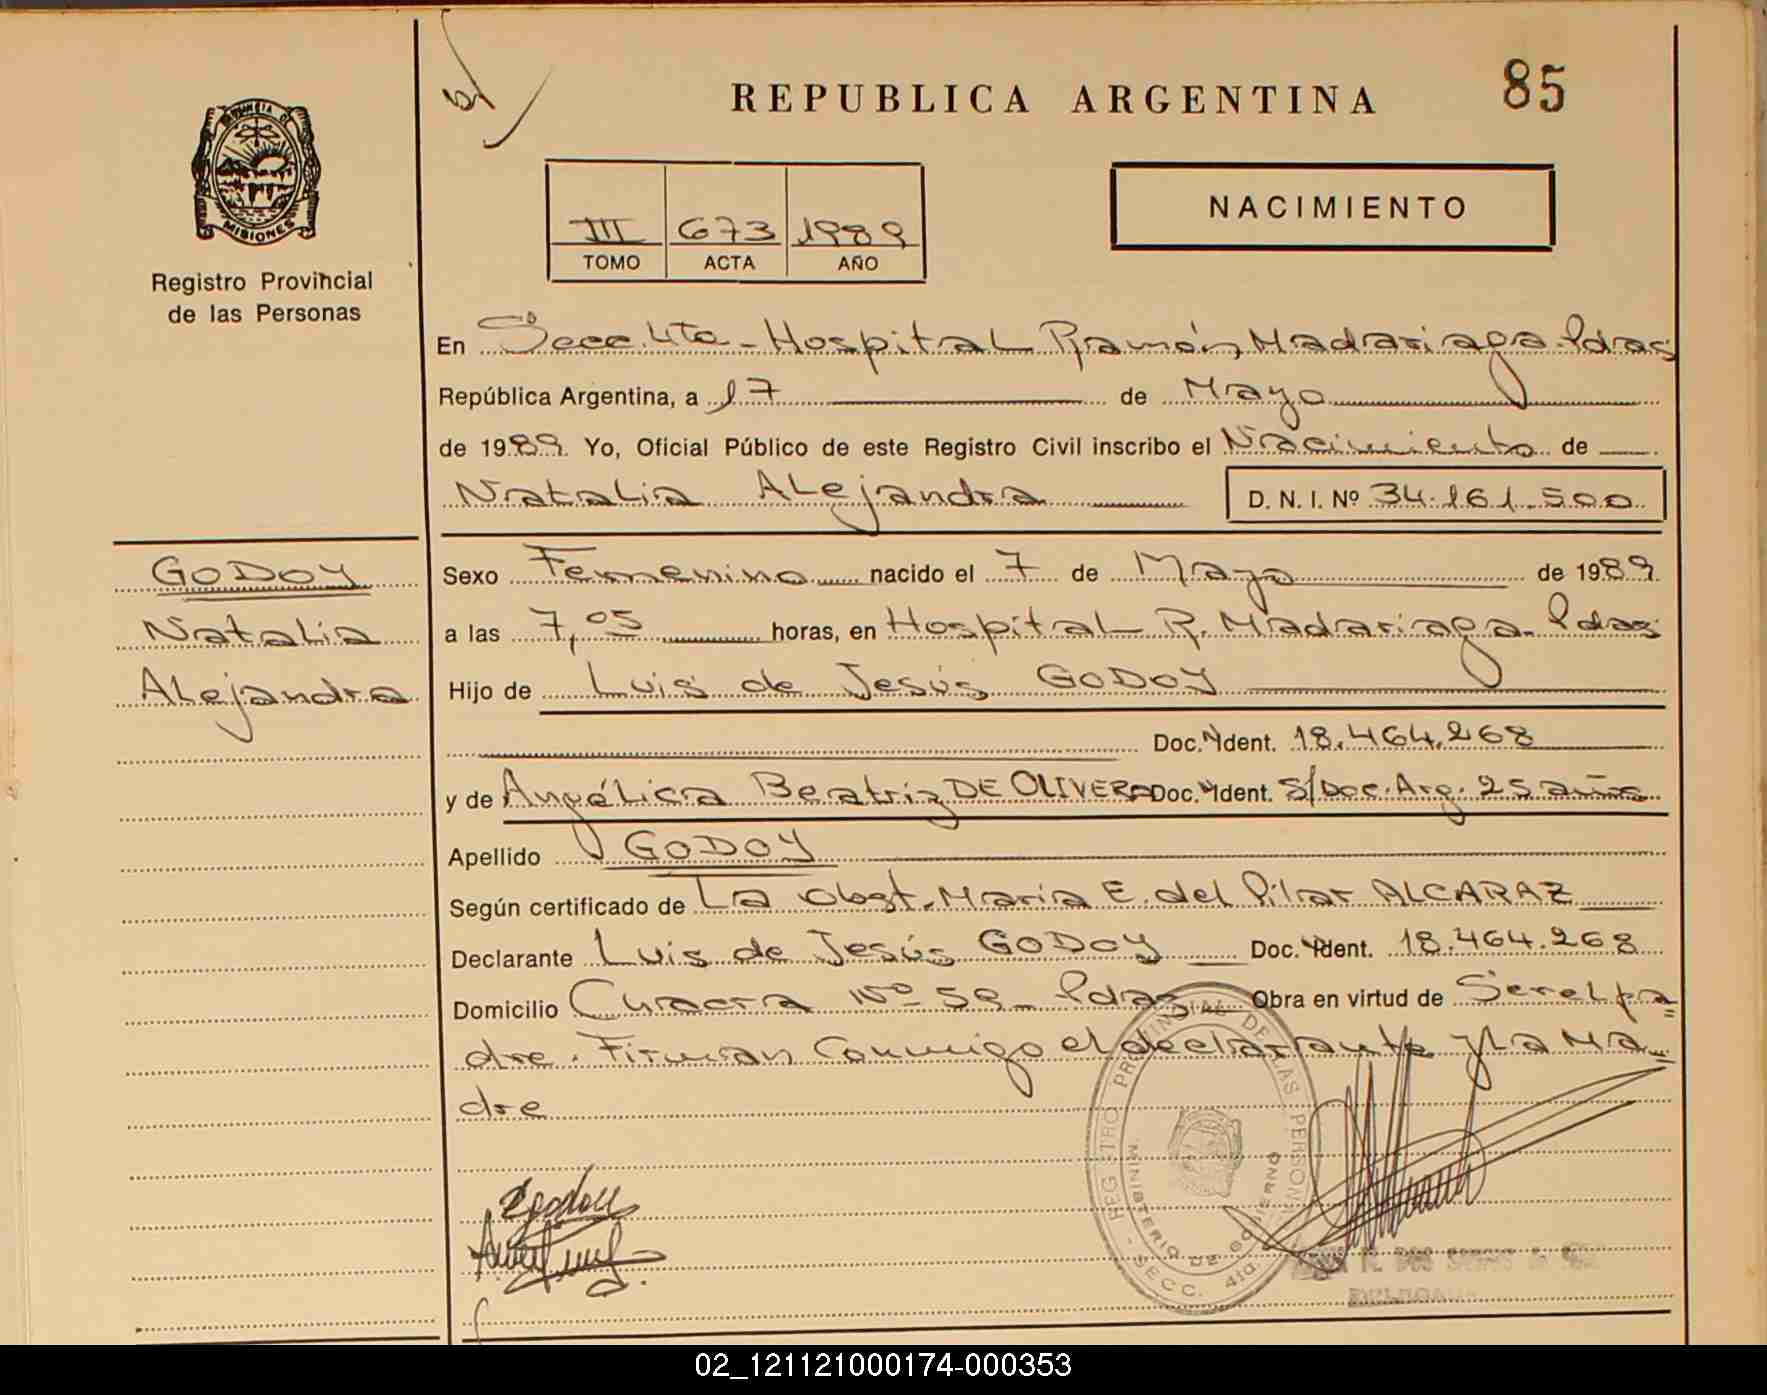 REPUBLICA ARGENTINA
85
PROVINCIA DE
MISIONES
Registro Provincial
de las Personas
III 673 1989
TOMO ACTA AÑO
NACIMIENTO
En Secc. 4ta - Hospital Ramón Madariaga. Pdas
República Argentina, a 17 de Mayo
de 1989. Yo, Oficial Público de este Registro Civil inscribo el Nacimiento de
Natalia Alejandra D. N. I. Nº 34.161.500
GODOY
Natalia
Alejandra
Sexo Femenino nacido el 7 de Mayo de 1989.
a las 7,05 horas, en Hospital R. Madariaga - Pdas
Hijo de Luis de Jesús GODOY
Doc. Ident. 18.464.268
y de Angélica Beatriz DE OLIVERA Doc. Ident. S/Doc. Arg. 25 años
Apellido GODOY
Según certificado de La Obst. Maria E. del Pilar ALCARAZ
Declarante Luis de Jesús GODOY Doc. Ident. 18.464.268
Domicilio Nº 59 - Pdas Obra en virtud de Ser el pa=
dre. Firman Conmigo el declarante y La Ma=
dre
REGISTRO PROVINCIAL DE LAS PERSONAS
MINISTERIO DE GOBIERNO
- SECC. 4ta.
02_121121000174-000353